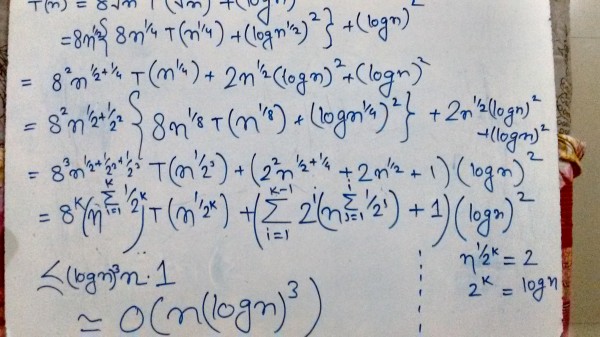 T(n) = 8√n T(√n) + (log n)²
= 8n^{1/2} { 8n^{1/4} T(n^{1/4}) + (log n^{1/2})² } + (log n)²
= 8² n^{1/2+1/4} T(n^{1/4}) + 2n^{1/2} (log n)² + (log n)²
= 8² n^{1/2+1/2²} { 8n^{1/8} T(n^{1/8}) + (log n^{1/4})² } + 2n^{1/2} (log n)²
+ (log n)²
= 8³ n^{1/2+1/2²+1/2³} T(n^{1/2³}) + (2² n^{1/2+1/4} + 2n^{1/2} + 1) (log n)²
= 8^K (n^{∑_{i=1}^{K} 1/2^K}) T(n^{1/2^K}) + (∑_{i=1}^{K-1} 2^i (n^{∑_{j=1}^{i} 1/2^j}) + 1) (log n)²
n^{1/2^K} = 2
2^K = log n
≤ (log n)³ n · 1
≃ O(n(log n)³)